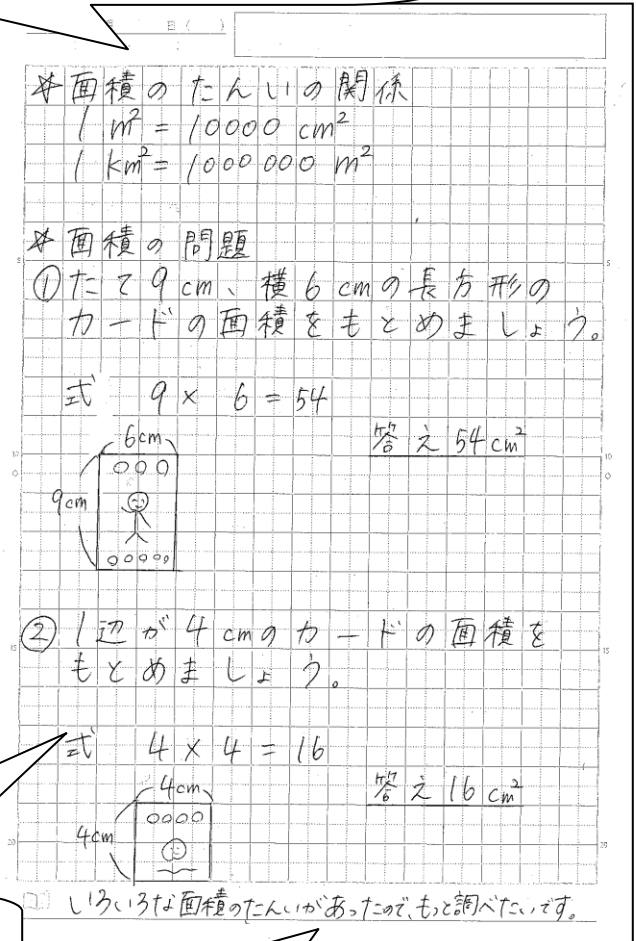 日( )
☆面積のたんいの関係
1 m² = 10000 cm²
1 km² = 1000000 m²
☆面積の問題
①たて9cm、横6cmの長方形の
カードの面積をもとめましょう。
式 9 × 6 = 54
答え 54cm²
6cm
9cm
②1辺が4cmのカードの面積を
もとめましょう。
式 4 × 4 = 16
答え 16cm²
4cm
4cm
いろいろな面積のたんいがあったので、もっと調べたいです。
5
5
10
10
15
15
20
20